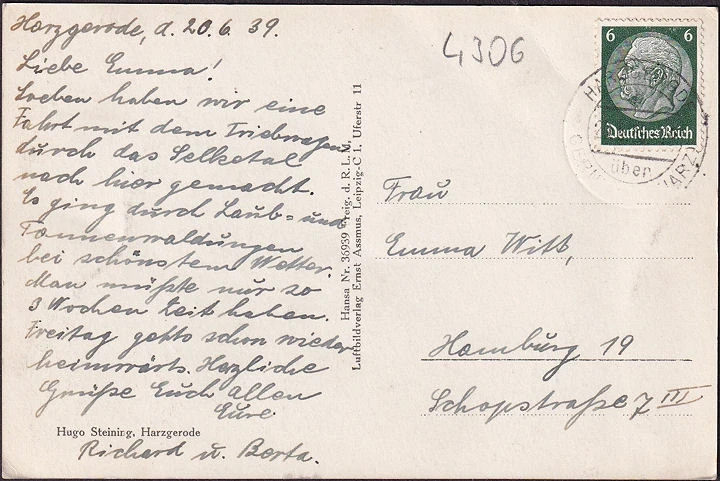 Harzgerode, d. 20.6.39.
Liebe Emma!
Soeben haben wir eine
Fahrt mit dem Triebwagen
durch das Selketal
nach hier gemacht.
Es ging durch Laub- und
Tannenwaldungen
bei schönstem Wetter.
Man müßte nur so
3 Wochen Zeit haben.
Freitag gehts schon wieder
heimwärts. Herzliche
Grüße Euch allen
Eure
Richard u. Berta.
Hugo Steining, Harzgerode
Hansa Nr. 36939 Freig. d. R.L.M.
Luftbildverlag Ernst Assmus, Leipzig-C 1, Uferstr 11
4306
6 6
Deutsches Reich
über
HARZ
Frau
Emma Witt,
Hamburg 19
Schopstraße 7 III